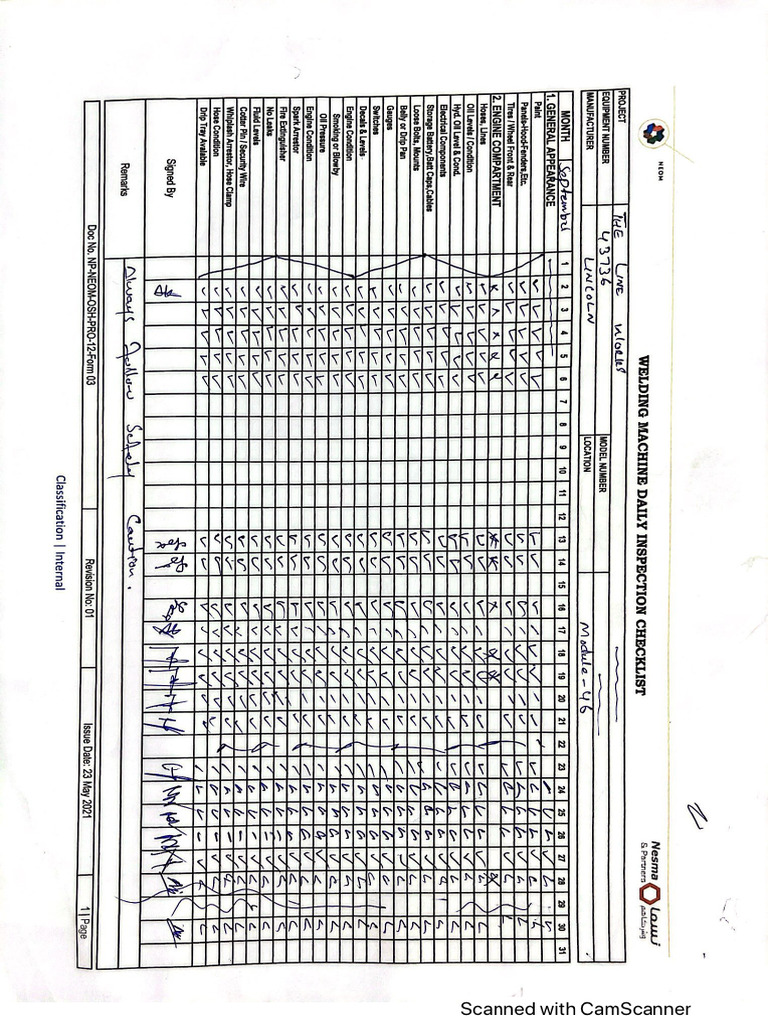 NEOM
WELDING MACHINE DAILY INSPECTION CHECKLIST
Nesma
& Partners
نسما
وشركاؤهم
PROJECT THE LINE WORKS
EQUIPMENT NUMBER 43736 MODEL NUMBER
MANUFACTURER LINCOLN LOCATION Module-46
MONTH September 1 2 3 4 5 6 7 8 9 10 11 12 13 14 15 16 17 18 19 20 21 22 23 24 25 26 27 28 29 30 31
1. GENERAL APPEARANCE
Paint
Panels-Hood-Fenders,Etc.
Tires / Wheel Front & Rear
2. ENGINE COMPARTMENT
Hoses, Lines
Oil Levels / Condition
Hyd. Oil Level & Cond.
Electrical Components
Storage Battery,Batt Caps,Cables
Loose Bolts, Mounts
Belly or Drip Pan
Gauges
Switches
Decals & Levels
Engine Condition
Smoking or Blowby
Oil Pressure
Engine Condition
Spark Arrestor
Fire Extinguisher
No Leaks
Fluid Levels
Cotter Pin / Security Wire
Whiplash Arrestor, Hose Clamp
Hose Condition
Drip Tray Available
Signed By
Remarks Always follow Safety Caution.
Doc No. NP-NEOM-OSH-PRO-12-Form 03 Revision No: 01 Issue Date: 23 May 2021 1 | Page
Classification | Internal
Scanned with CamScanner